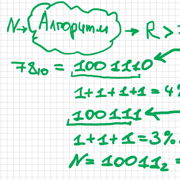 N → Алгоритм → R >
78₁₀ = 1001110
1+1+1+1 = 4%
100111
1+1+1 = 3%.
N = 10011₂ =